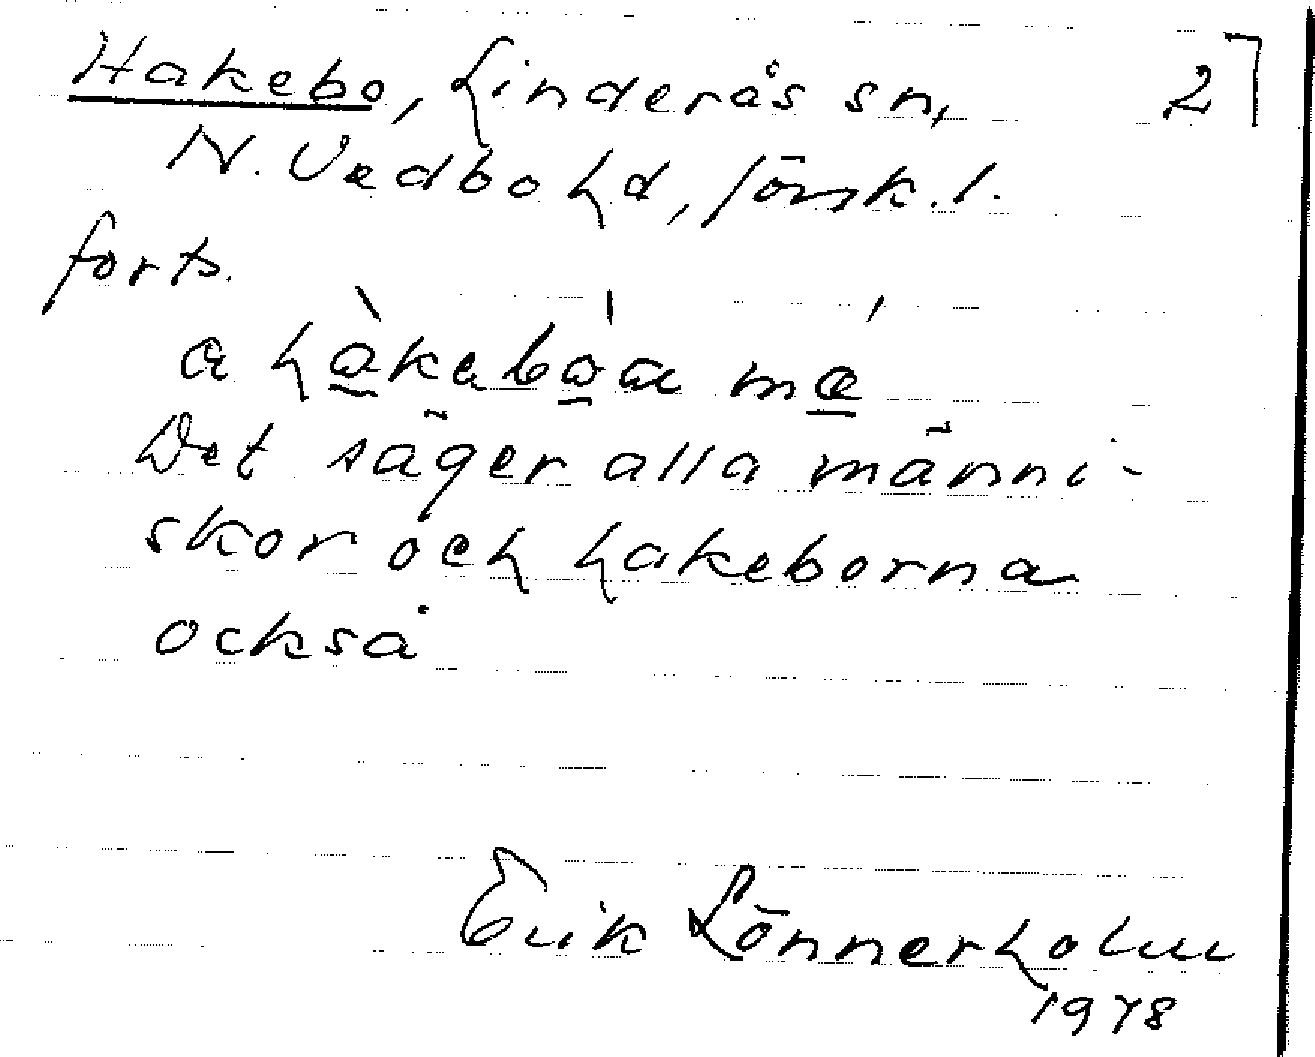 Hakebo, Linderås sn, 2
N. Vedbo hd, Jönk. l.
forts.
a hàkebòa mæ
Det säger alla männi-
skor och hakeborna
också
Erik Lönnerholm
1978